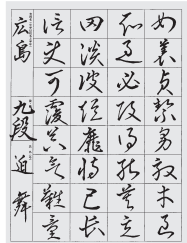 女慕貞絜男效才良
知過必改得能莫忘
罔談彼短靡恃己長
信使可覆器欲難量
広島 九段 迫 舞